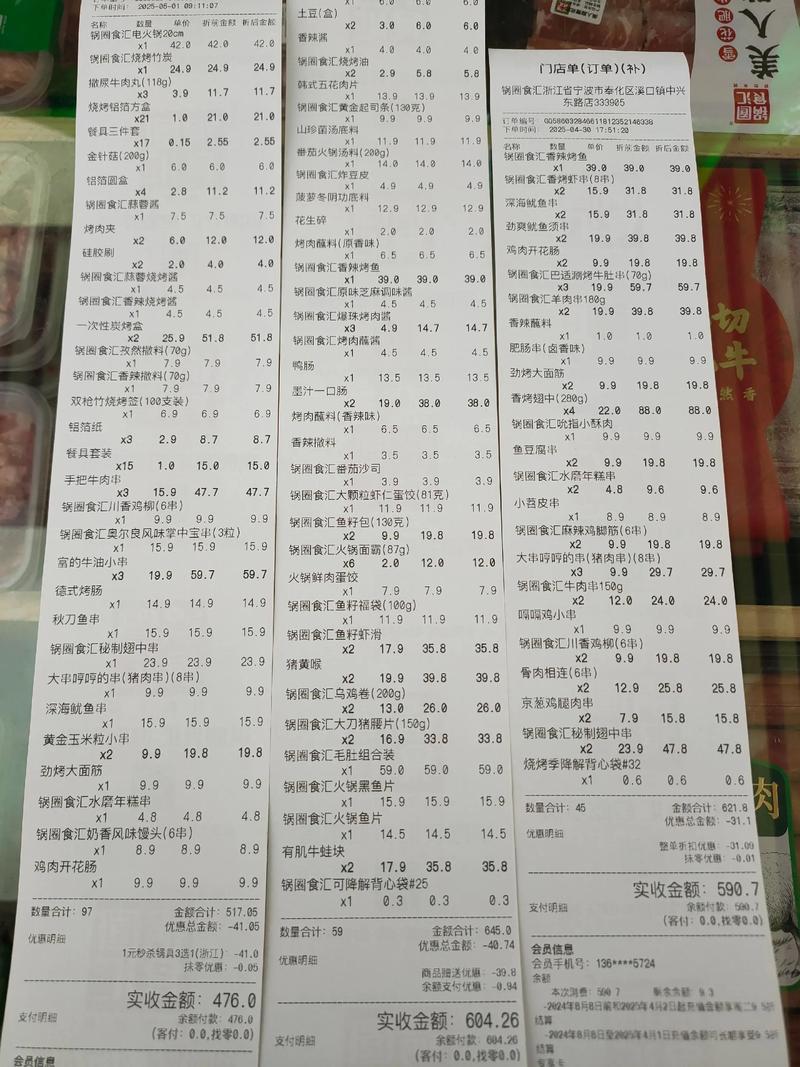 下单时间: 2025-05-01 09:11:07
名称 数量 单价 折前金额 折后金额
锅圈食汇电火锅20cm
x1 42.0 42.0 42.0
锅圈食汇烧烤竹炭
x1 24.9 24.9 24.9
撒尿牛肉丸(118g)
x3 3.9 11.7 11.7
烧烤铝箔方盒
x21 1.0 21.0 21.0
餐具三件套
x17 0.15 2.55 2.55
金针菇(200g)
x1 6.0 6.0 6.0
铝箔圆盒
x4 2.8 11.2 11.2
锅圈食汇蒜蓉酱
x1 7.5 7.5 7.5
烤肉夹
x2 6.0 12.0 12.0
硅胶刷
x2 2.0 4.0 4.0
锅圈食汇蒜蓉烧烤酱
x1 4.5 4.5 4.5
锅圈食汇香辣烧烤酱
x1 4.5 4.5 4.5
一次性炭烤盒
x2 25.9 51.8 51.8
锅圈食汇孜然撒料(70g)
x1 7.9 7.9 7.9
锅圈食汇香辣撒料(70g)
x1 7.9 7.9 7.9
双枪竹烧烤签(100支装)
x1 6.9 6.9 6.9
铝箔纸
x3 2.9 8.7 8.7
餐具套装
x15 1.0 15.0 15.0
手把牛肉串
x3 15.9 47.7 47.7
锅圈食汇川香鸡柳(6串)
x1 9.9 9.9 9.9
锅圈食汇奥尔良风味掌中宝串(3粒)
x1 15.9 15.9 15.9
富的牛油小串
x3 19.9 59.7 59.7
德式烤肠
x1 14.9 14.9 14.9
秋刀鱼串
x1 15.9 15.9 15.9
锅圈食汇秘制翅中串
x1 23.9 23.9 23.9
大串哼哼的串(猪肉串)(8串)
x1 9.9 9.9 9.9
深海鱿鱼串
x1 15.9 15.9 15.9
黄金玉米粒小串
x2 9.9 19.8 19.8
劲烤大面筋
x1 9.9 9.9 9.9
锅圈食汇水磨年糕串
x1 4.8 4.8 4.8
锅圈食汇奶香风味馒头(6串)
x1 8.9 8.9 8.9
鸡肉开花肠
x1 9.9 9.9 9.9
数量合计: 97 金额合计: 517.05
优惠总金额: -41.05
优惠明细
1元秒杀锅具3选1(浙江): -41.0
抹零优惠: -0.05
实收金额: 476.0
支付明细 余额付款: 476.0
(客付: 0.0,找零0.0)
会员信息
x1 6.0 6.0 6.0
土豆(盒)
x2 3.0 6.0 6.0
香辣酱
x1 4.0 4.0 4.0
锅圈食汇烧烤油
x2 2.9 5.8 5.8
韩式五花肉片
x1 13.9 13.9 13.9
锅圈食汇黄金起司条(130克)
x1 9.9 9.9 9.9
山珍菌汤底料
x1 11.9 11.9 11.9
番茄火锅汤料(200g)
x1 14.0 14.0 14.0
锅圈食汇炸豆皮
x1 4.9 4.9 4.9
菠萝冬阴功底料
x1 12.9 12.9 12.9
花生碎
x1 2.0 2.0 2.0
烤肉蘸料(原香味)
x1 6.5 6.5 6.5
锅圈食汇香辣烤鱼
x1 39.0 39.0 39.0
锅圈食汇原味芝麻调味酱
x1 4.5 4.5 4.5
锅圈食汇爆珠烤肉酱
x3 4.9 14.7 14.7
锅圈食汇烤肉蘸酱
x1 4.5 4.5 4.5
鸭肠
x1 13.5 13.5 13.5
墨汁一口肠
x2 19.0 38.0 38.0
烤肉蘸料(香辣味)
x1 6.5 6.5 6.5
香辣撒料
x1 3.5 3.5 3.5
锅圈食汇番茄沙司
x1 3.9 3.9 3.9
锅圈食汇大颗粒虾仁蛋饺(81克)
x1 11.9 11.9 11.9
锅圈食汇鱼籽包(130克)
x2 9.9 19.8 19.8
锅圈食汇火锅面霸(87g)
x6 2.0 12.0 12.0
火锅鲜肉蛋饺
x1 7.9 7.9 7.9
锅圈食汇鱼籽福袋(100g)
x1 11.9 11.9 11.9
锅圈食汇鱼籽虾滑
x2 17.9 35.8 35.8
猪黄喉
x2 19.9 39.8 39.8
锅圈食汇乌鸡卷(200g)
x2 13.0 26.0 26.0
锅圈食汇大刀猪腰片(150g)
x2 16.9 33.8 33.8
锅圈食汇毛肚组合装
x1 59.0 59.0 59.0
锅圈食汇火锅黑鱼片
x1 15.9 15.9 15.9
锅圈食汇火锅鱼片
x1 14.5 14.5 14.5
有肌牛蛙块
x2 17.9 35.8 35.8
锅圈食汇可降解背心袋#25
x1 0.3 0.3 0.3
数量合计: 59 金额合计: 645.0
优惠总金额: -40.74
优惠明细
商品赠送优惠: -39.8
余额支付优惠: -0.94
实收金额: 604.26
支付明细 余额付款: 604.26
(客付: 0.0,找零0.0)
门店单(订单)(补)
锅圈食汇浙江省宁波市奉化区溪口镇中兴
东路店333905
下单时间: 2025-04-30 17:51:20
名称 数量 单价 折前金额 折后金额
锅圈食汇香辣烤鱼
x1 39.0 39.0 39.0
锅圈食汇香烤虾串(8串)
x2 15.9 31.8 31.8
深海鱿鱼串
x2 15.9 31.8 31.8
劲爽鱿鱼须串
x2 19.9 39.8 39.8
鸡肉开花肠
x2 9.9 19.8 19.8
锅圈食汇巴适涮烤牛肚串(70g)
x3 19.9 59.7 59.7
锅圈食汇羊肉串180g
x2 19.9 39.8 39.8
香辣蘸料
x1 1.0 1.0 1.0
肥肠串(卤香味)
x1 9.9 9.9 9.9
劲烤大面筋
x2 9.9 19.8 19.8
香烤翅中(280g)
x4 22.0 88.0 88.0
锅圈食汇吮指小酥肉
x1 9.9 9.9 9.9
鱼豆腐串
x2 9.9 19.8 19.8
锅圈食汇水磨年糕串
x2 4.8 9.6 9.6
小苕皮串
x1 8.9 8.9 8.9
锅圈食汇麻辣鸡脚筋(6串)
x2 9.9 19.8 19.8
大串哼哼的串(猪肉串)(8串)
x3 9.9 29.7 29.7
锅圈食汇牛肉串150g
x2 12.0 24.0 24.0
嗝嗝鸡小串
x1 9.9 9.9 9.9
锅圈食汇川香鸡柳(6串)
x2 9.9 19.8 19.8
骨肉相连(6串)
x2 12.9 25.8 25.8
京葱鸡腿肉串
x2 7.9 15.8 15.8
锅圈食汇秘制翅中串
x2 23.9 47.8 47.8
烧烤季降解背心袋#32
x1 0.6 0.6 0.6
数量合计: 45 金额合计: 621.8
优惠总金额: -31.1
优惠明细
整单折扣优惠: -31.09
抹零优惠: -0.01
实收金额: 590.7
支付明细 余额付款: 590.7
(客付: 0.0,找零0.0)
会员信息
会员手机号: 136****5724
余额
本次消费: 590.7 剩余余额: 9.3
结算
结算
美人
锅圈食汇
切
牛
肉